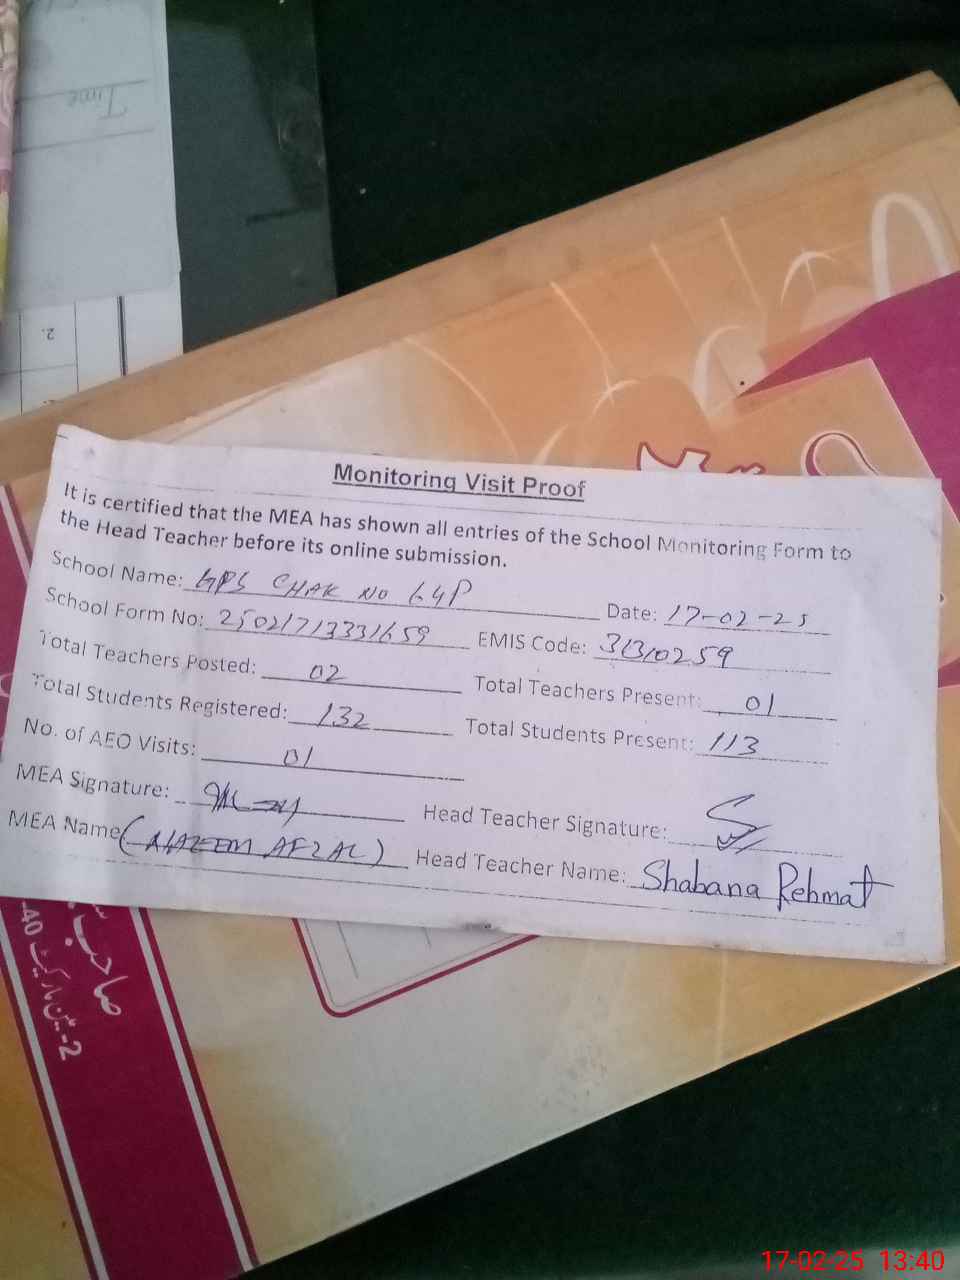 Time
2.
Monitoring Visit Proof
It is certified that the MEA has shown all entries of the School Monitoring Form to
the Head Teacher before its online submission.
School Name: GPS CHAK NO 64P Date: 17-02-25
School Form No: 25021713331659 EMIS Code: 31310259
Total Teachers Posted: 02 Total Teachers Present: 01
Total Students Registered: 132 Total Students Present: 113
No. of AEO Visits: 01
MEA Signature: Head Teacher Signature:
MEA Name (NAZEEM AFZAL) Head Teacher Name: Shabana Rehmat
صاحب
2-مین مارکیٹ
40
17-02-25 13:40